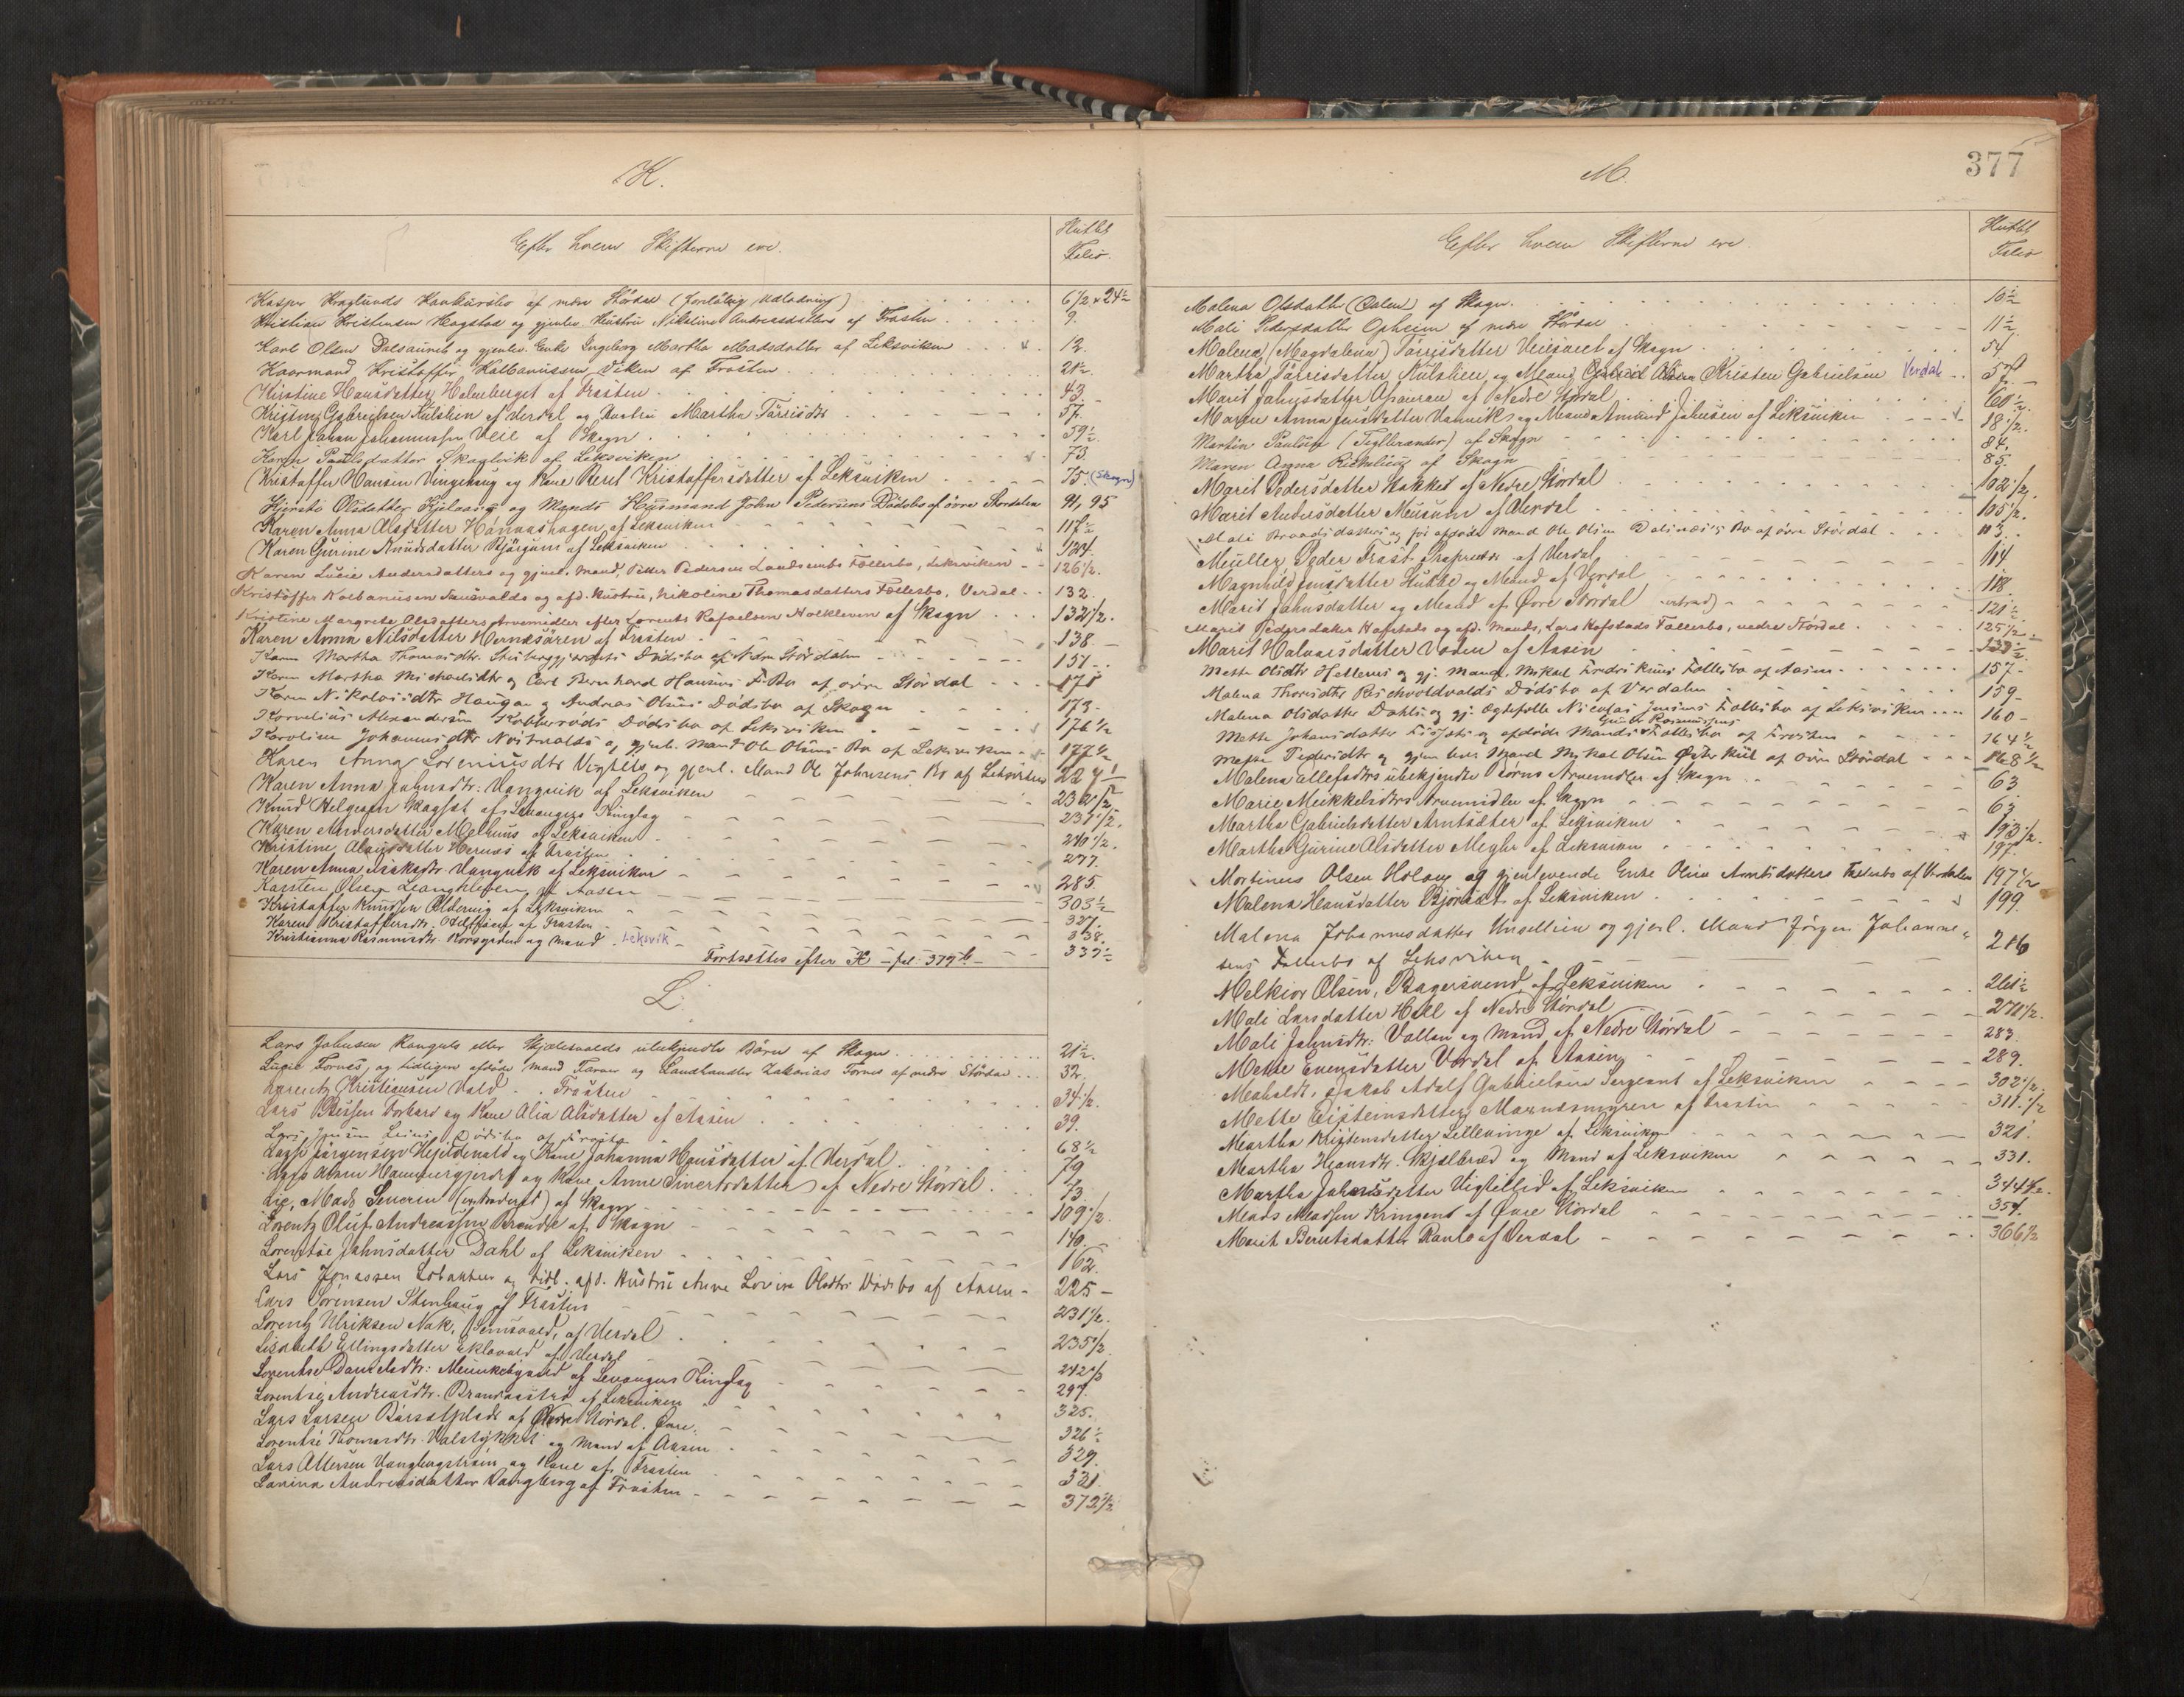 K.
Efter hvem Skifterne ere.
Sluttet Folio.
Kasper Kraglunds Konkursbo af nedre Stördal (foreløbig Udlodning) 6 1/2 & 24 1/2
Kristian Kristensen Hogstad og gjenlev. Hustru Nikoline Andreasdatters af Frosten 9.
Karl Olsen Dalsaunet og gjenlev. Enke Ingeborg Martha Madsdatter af Leksviken 12.
Kristoffer Kolbanussen Viken af Frosten 21 1/2
Kirstine Hansdatter Holmberget af Frosten 43.
Kristen Gabrielsen Külslien af Verdal og Hustru Martha Tørrisdtr 57.
Karl Johan Johannessen Veie af Skogn 59 1/2.
Karen Paulsdatter Skaglvik af Leksviken 73
Kristoffer Hansen Vingehaug og Kone Beret Kristoffersdatter af Leksviken 75. (Skogn)
Kjersti Olsdatter og Mands Husmand John Pedersens Dödsbo af övre Stordalen 91, 95
Karen Anna Olsdatter Hønnaashagen af Leksviken 117 1/2
Karen Gurine Knudsdatter Bjørgum af Leksviken 124.
Karen Lucie Andersdatters og gjenl. Mand, Petter Pedersen Landsembs Fællesbo, Leksviken 126 1/2.
Kristoffer Kolbanusen Sausvalds og afd. Hustru, Nikoline Thomasdatters Fællesbo, Verdal 132.
Kristine Margrete Olsdatters Arvemidler efter Lorents Rafaelsen Holkleven af Skogn 132 1/2.
Karen Anna Nilsdatter Hernæsören af Frosten 138.
Karen Martha Thomasdtr. Dödsbo af Nedre Stördalen 151.
Karen Martha Michaelsdtr og Carl Bernhard Hansens F. Bo af övre Stördal 171
Karen Nikolaisdtr Haugan og Andreas Olsens Dödsbo af Skogn 173.
Kornelius Alexandersen Kobberöds Dödsbo af Leksviken 176 1/2
Karoline Johannesdtr Nöstvolds og gjenl. Mand Ole Olsens Bo af Leksviken 177 1/2
Karen Anna Lorentsdtr Vigtels og gjenl. Mand Ol Johnsens Bo af Leksviken 224 1/2
Karen Anna Johnsdtr: Vangvik af Leksviken 232 1/2
Knud Helgesen Skagset af Levangers Thinglag 237 1/2.
Karen Andersdatter Melhuus af Leksviken 240 1/2.
Kristine Olausdatter Hernæs af Frosten 277.
Karen Anna Isaksdtr Vangvik af Leksviken 285.
Karsten Olsen Leangkleven af Aasen 303 1/2
Kristoffer Knudsen Oldervig af Leksviken 327.
Karen Kristoffersdtr. af Frosten 338.
Kristianna Rasmusdtr. Korsgaden og Mand. Leksvik 339 1/2
Fortsættes efter K – fol. 379 b
L.
Lars Johnsen Ranguls eller Skjælesvalds ubekjendte Börn af Skogn 21 1/2.
Lucie Fornes, og tidligere afdøde Mand Farver og Landhandler Zakarias Fornes af nedre Stördal 32.
Lorentz Kristiansen Vald Frosten 34 1/2.
Lars Olessen Vordahl og Kone Alia Olsdatter af Aasen 39.
Lars Jensen Dödsbo af Frosten 68 1/2
Lasse Jørgensen Hejeldevald og Kone Johanna Hansdatter af Verdal 79
Lars Olsen Hammergjerdet og Kone Anne Sivertsdatter af Nedre Stördal 73.
Lie, Mads Severin (extraderet) af Skogn 109 1/2.
Lorentz Oluf Andreassen Brandse af Skogn 140.
Lorentse Johnsdatter Dahl af Leksviken 162.
Lars Jonassen og tidl. afd. Hustru Anne Lovise Olsdtr Dödsbo af Aasen 225 –
Lars Sörensen Stenhaug af Frosten 231 1/2.
Lorentz Ulriksen Nak, Semsvald, af Verdal 235 1/2
Lisabeth Ellingsdatter Eklovald af Verdal 242 1/3
Lorentse Danielsdtr: Munkebygvald af Levangers Thinglag 297.
Lorentse Andreasdtr. Brandaasved af Leksviken 325.
Lars Larsen Börsetplads af Nedre Stördal. Övre. 326 1/2
Lorentse Thomasdtr. Valstykket og Mand af Aasen 329.
Lars Ottersen Vangbergström og Kone af Frosten 331.
Lorina Andreasdatter Vangberg af Frosten 372 1/2
377
M.
Efter hvem Skifterne ere.
Sluttet Folio
Malena Olsdatter (Dalen) af Skogn 10 1/2
Mali Pedersdatter Opheim af nedre Stördal 11 1/2
Malena (Magdalena) Tørrisdatter Veiesaeet af Skogn 54
Martha Tørrisdatter Külslien og Mand Kristen Gabrielsen Verdal 57
Marit Johnsdatter Opauran af Nedre Stördal 60 1/2
Maren Anna Jensdatter Vannvik og Mand Amund Johnsen af Leksviken 78 1/2.
Martin Paulsen (Teglbrænder) af Skogn 84.
Maren Anna Richelieu af Skogn 85.
Marit Pedersdatter Hakket af Nedre Stördal 102 1/2
Marit Andersdatter Meusum af Verdal 105 1/2.
Mali Baardsdatters og før afdøde Mand Ole Olsen Dalenæs's Bo af övre Stördal 113.
Müller, Peder Frost, Proprietær af Verdal 114
Magnhild Jensdatter Stubbe og Mand af Verdal 118.
Marit Johnsdatter og Mand af Övre Stördal extrad) 121 1/2
Marit Pedersdatter Hofstads og afd. Mands, Lars Hofstads Fællesbo, nedre Stördal 125 1/2
Marit Halvarsdatter Voden af Aasen 137 1/2
Mette Olsdtr Hellems og gj. Mand, Mikal Fredriksens Fællesbo af Aasen 157 –
Malena Thorsdtr Bjekvoldvalds Dödsbo af Verdalen 159 –
Malena Olsdatter Dahls og gj. Ægtefælle Nicolai Jensens Fællesbo af Leksviken 160 –
Mette Johansdatter og afdøde Mands Rasmussens Fællesbo af Frosten 164 1/2
Mette Pedersdtr og gjenlev. Mand Mykal Olsen Østerkül af övre Stördal 168 1/2
Malena Ellefsdtrs ubekjendte Börns Arvemidler af Skogn 63
Marie Mikkelsdtrs Arvemidler af Skogn 63
Martha Gabrielsdatter Arntsæter af Leksviken 193 1/2.
Martha Gurine Olsdatter Myhr af Leksviken 197.
Mortinus Olsen Holong og gjenlevende Enke Oline Arntsdatters Fælesbo af Verdalen 197 1/2
Malena Hansdatter Björnset af Leksviken 199.
Malena Johannesdatter Unsellien og gjenl. Mand Jörgen Johanne-
sens Fællesbo af Leksviken 216
Melkior Olsen, Bagersvend, af Leksviken 261 1/2
Mali Larsdatter Hell af Nedre Stördal 271 1/2.
Mali Johnsdtr: Vollan og Mand af Nedre Stördal 283.
Mette Evensdatter Vordal af Aasen 289.
Meboldt, Jakob Adolf Gabrielsen Sergeant af Leksviken 302 1/2.
Mette Eisteinsdatter Mannæsmyren af Frosten 311. 1/2
Martha Kristensdatter Lillevinge af Leksviken 321.
Martha Hansdtr. Skjælbred og Mand af Leksviken 331.
Martha Johnsdatter Vigtellid af Leksviken 344 1/2.
Mads Madsen Kringens af Övre Stördal 354.
Marit Berntsdatter Ranlo af Verdal 366 1/2